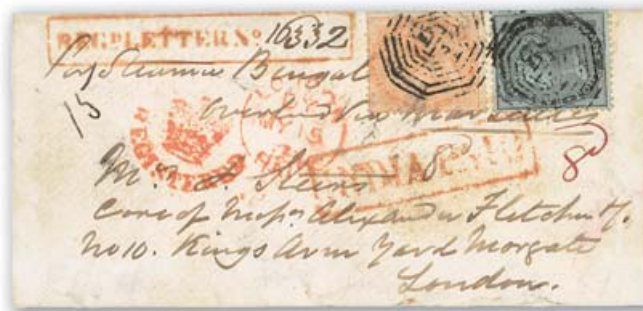 REG.D LETTER No. 10332
Per Steamer Bengal
Overland via Marseilles
15
REGISTERED
MY 15
INDIA PAID
8d
8d
M
Care of Messrs Alexander Fletcher &
No 10. Kings Arm Yard Morgate
London.